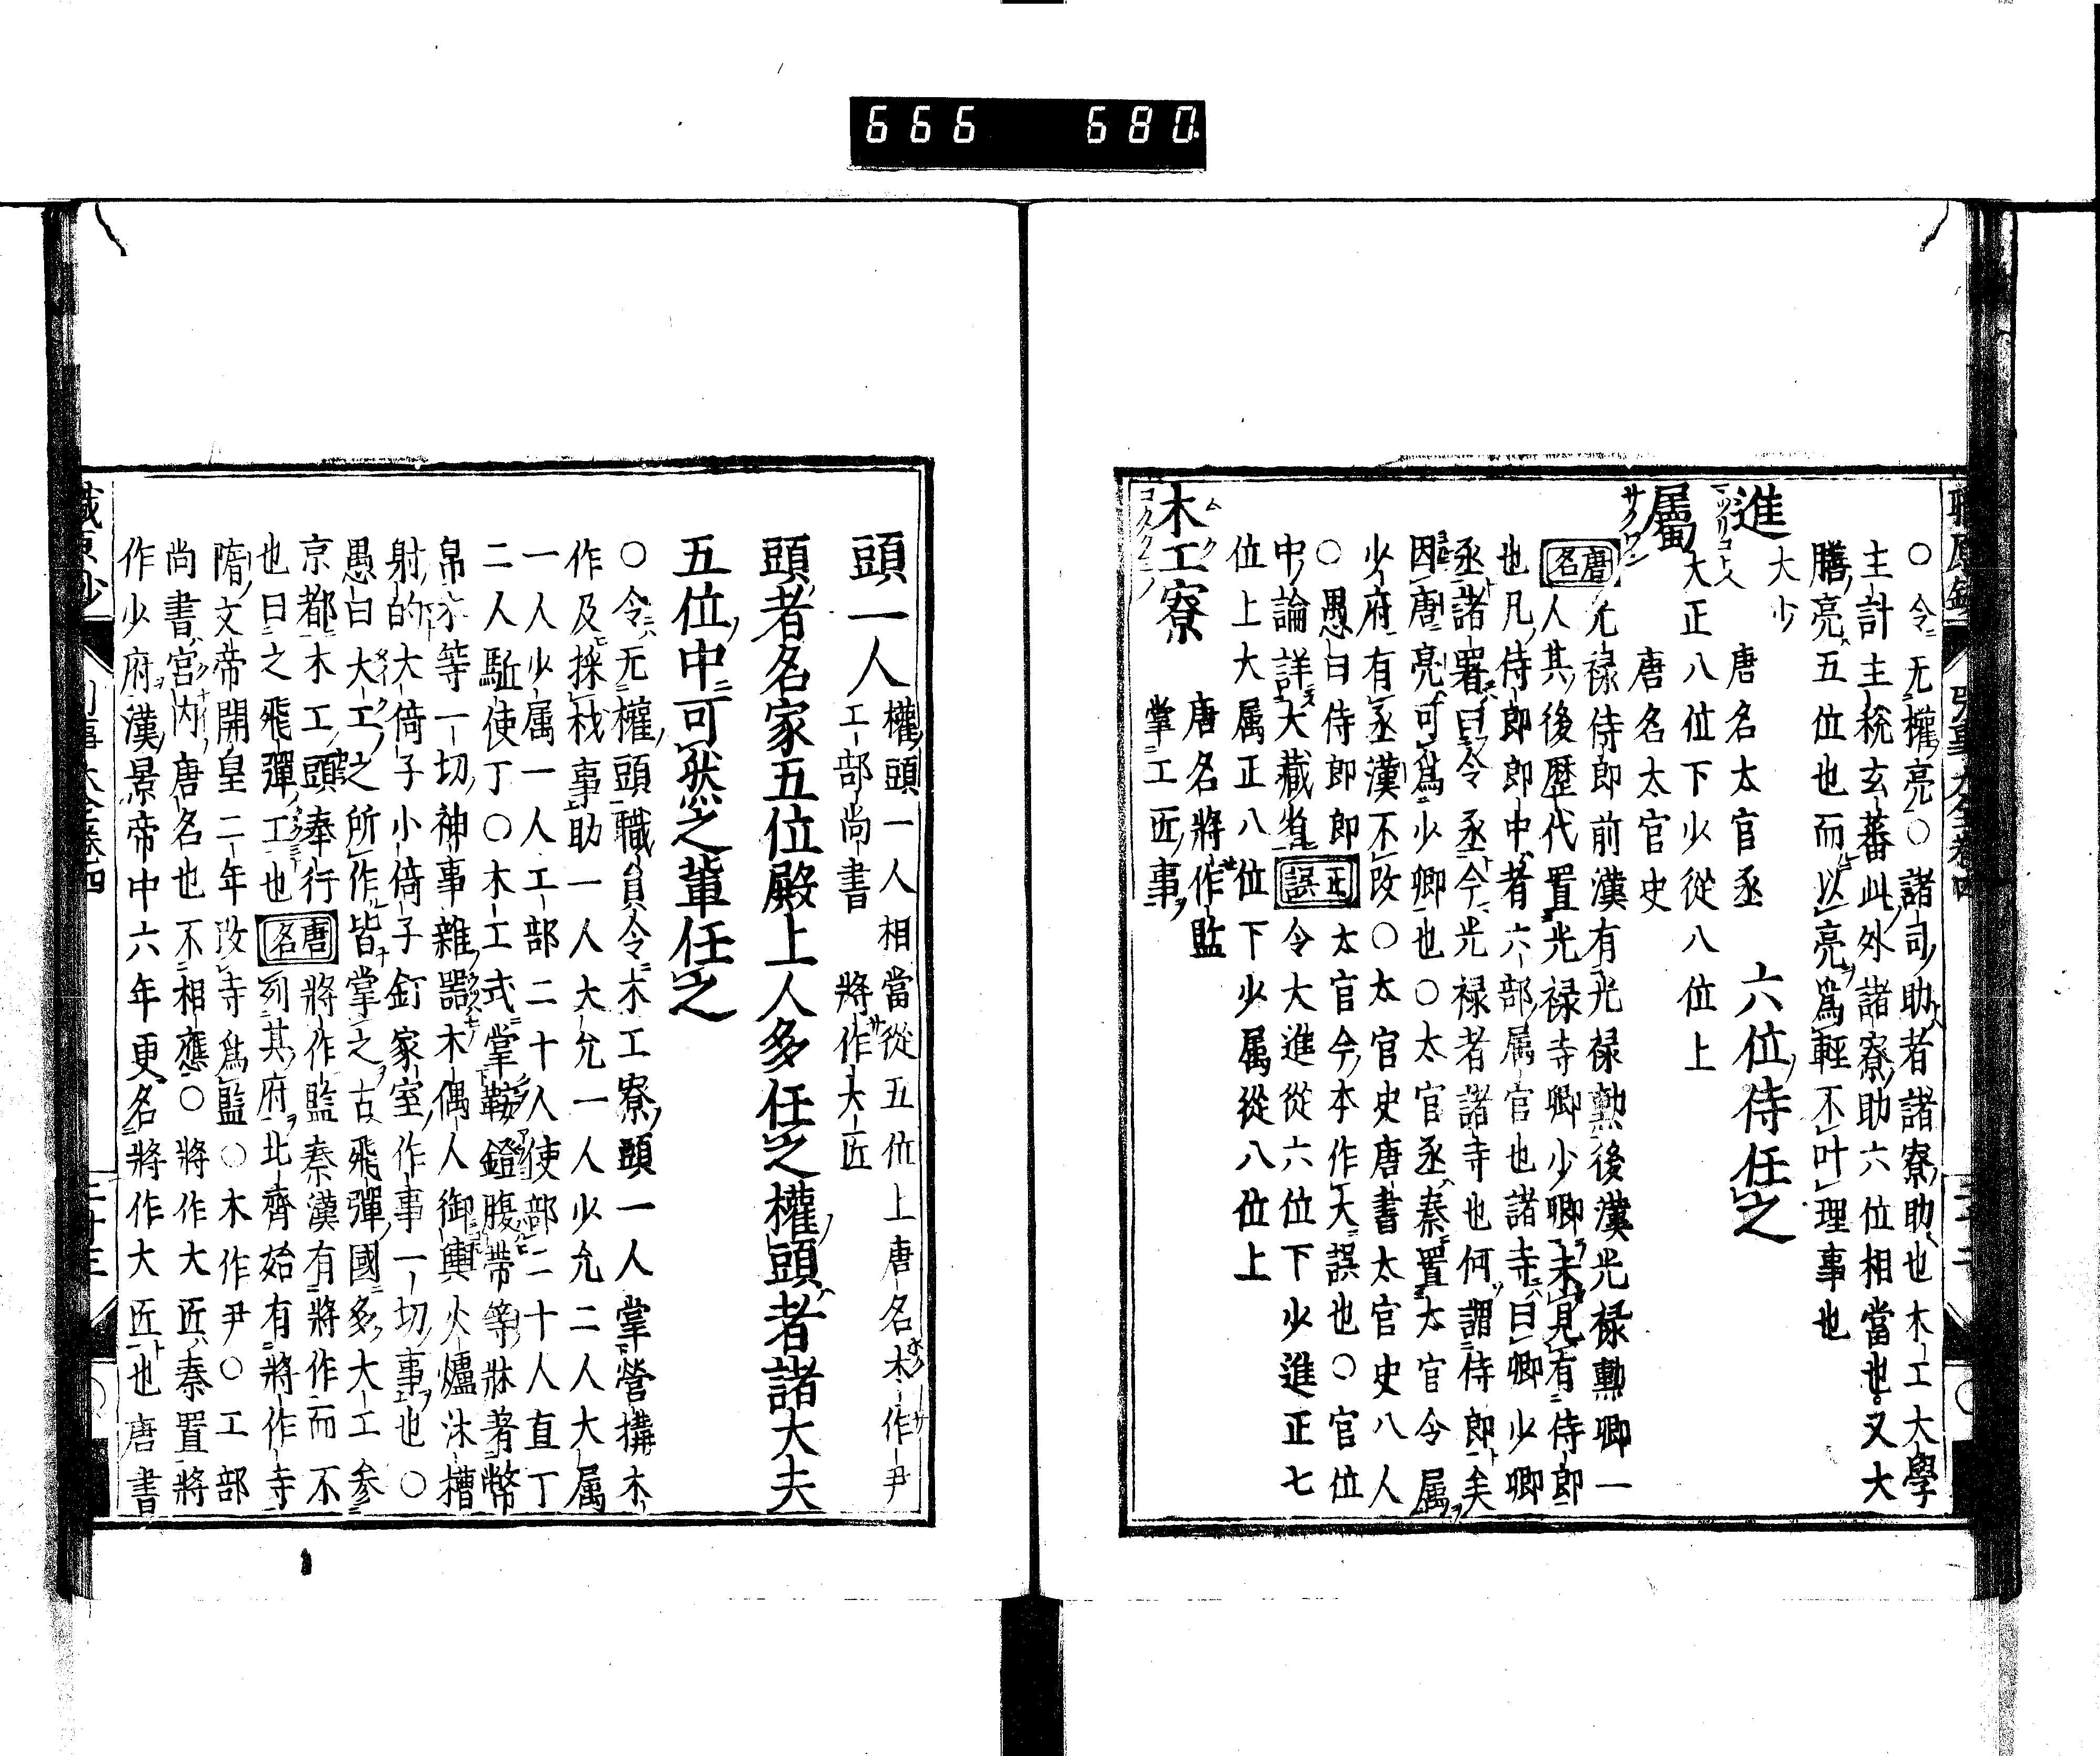 666 680
○令ニ无權亮○諸司助者諸寮助也木工大學
主計主税玄蕃此外諸寮助六位相當也又大
膳亮五位也而以亮爲輕不叶理事也
進 大少 唐名太官丞 六位侍任之
屬 大正八位下少從八位上
サクワン 唐名太官史
唐名 光禄侍郎前漢有光禄勲後漢光禄勲卿一
人其後歴代置光禄寺卿少卿未見有侍郎
也凡侍郎郎中者六部属官也諸寺曰卿少卿
丞諸署曰令丞今光禄者諸寺也何謂侍郎矣
因唐亮可爲少卿也○太官丞秦置太官令属
少府有丞漢不改○太官史唐書太官史八人
○愚曰侍郎郎 太官令本作大誤也○官位
中論詳大藏省 正誤 令大進從六位下少進正七
位上大属正八位下少属從八位上
木工寮 唐名將作監
コタクミノ 掌工匠事
頭一人 權頭一人相當從五位上唐名木作尹
工部尚書 將作大匠
頭者名家五位殿上人多任之權頭者諸大夫
五位中可然之輩任之
○令ニ无權頭職員令木工寮頭一人掌營構木
作及採材事助一人大允一人少允二人大属
一人少属一人工部二十人使部二十人直丁
二人駈使丁○木工式掌鞍鐙腹帶等牀著幣
帛木等一切神事雜器木偶人御輿火爐沐槽
射的大倚子小倚子釘家室作事一切事也○
愚曰大工之所作皆掌之古飛彈國多大工参
京都木工頭奉行 將作監秦漢有將作而不
也曰之飛彈工也 唐名 列其府北齊始有將作寺
隋文帝開皇二年改寺爲監○木作尹○工部
尚書宮内唐名也不相應○將作大匠秦置將
作少府漢景帝中六年更名將作大匠也唐書